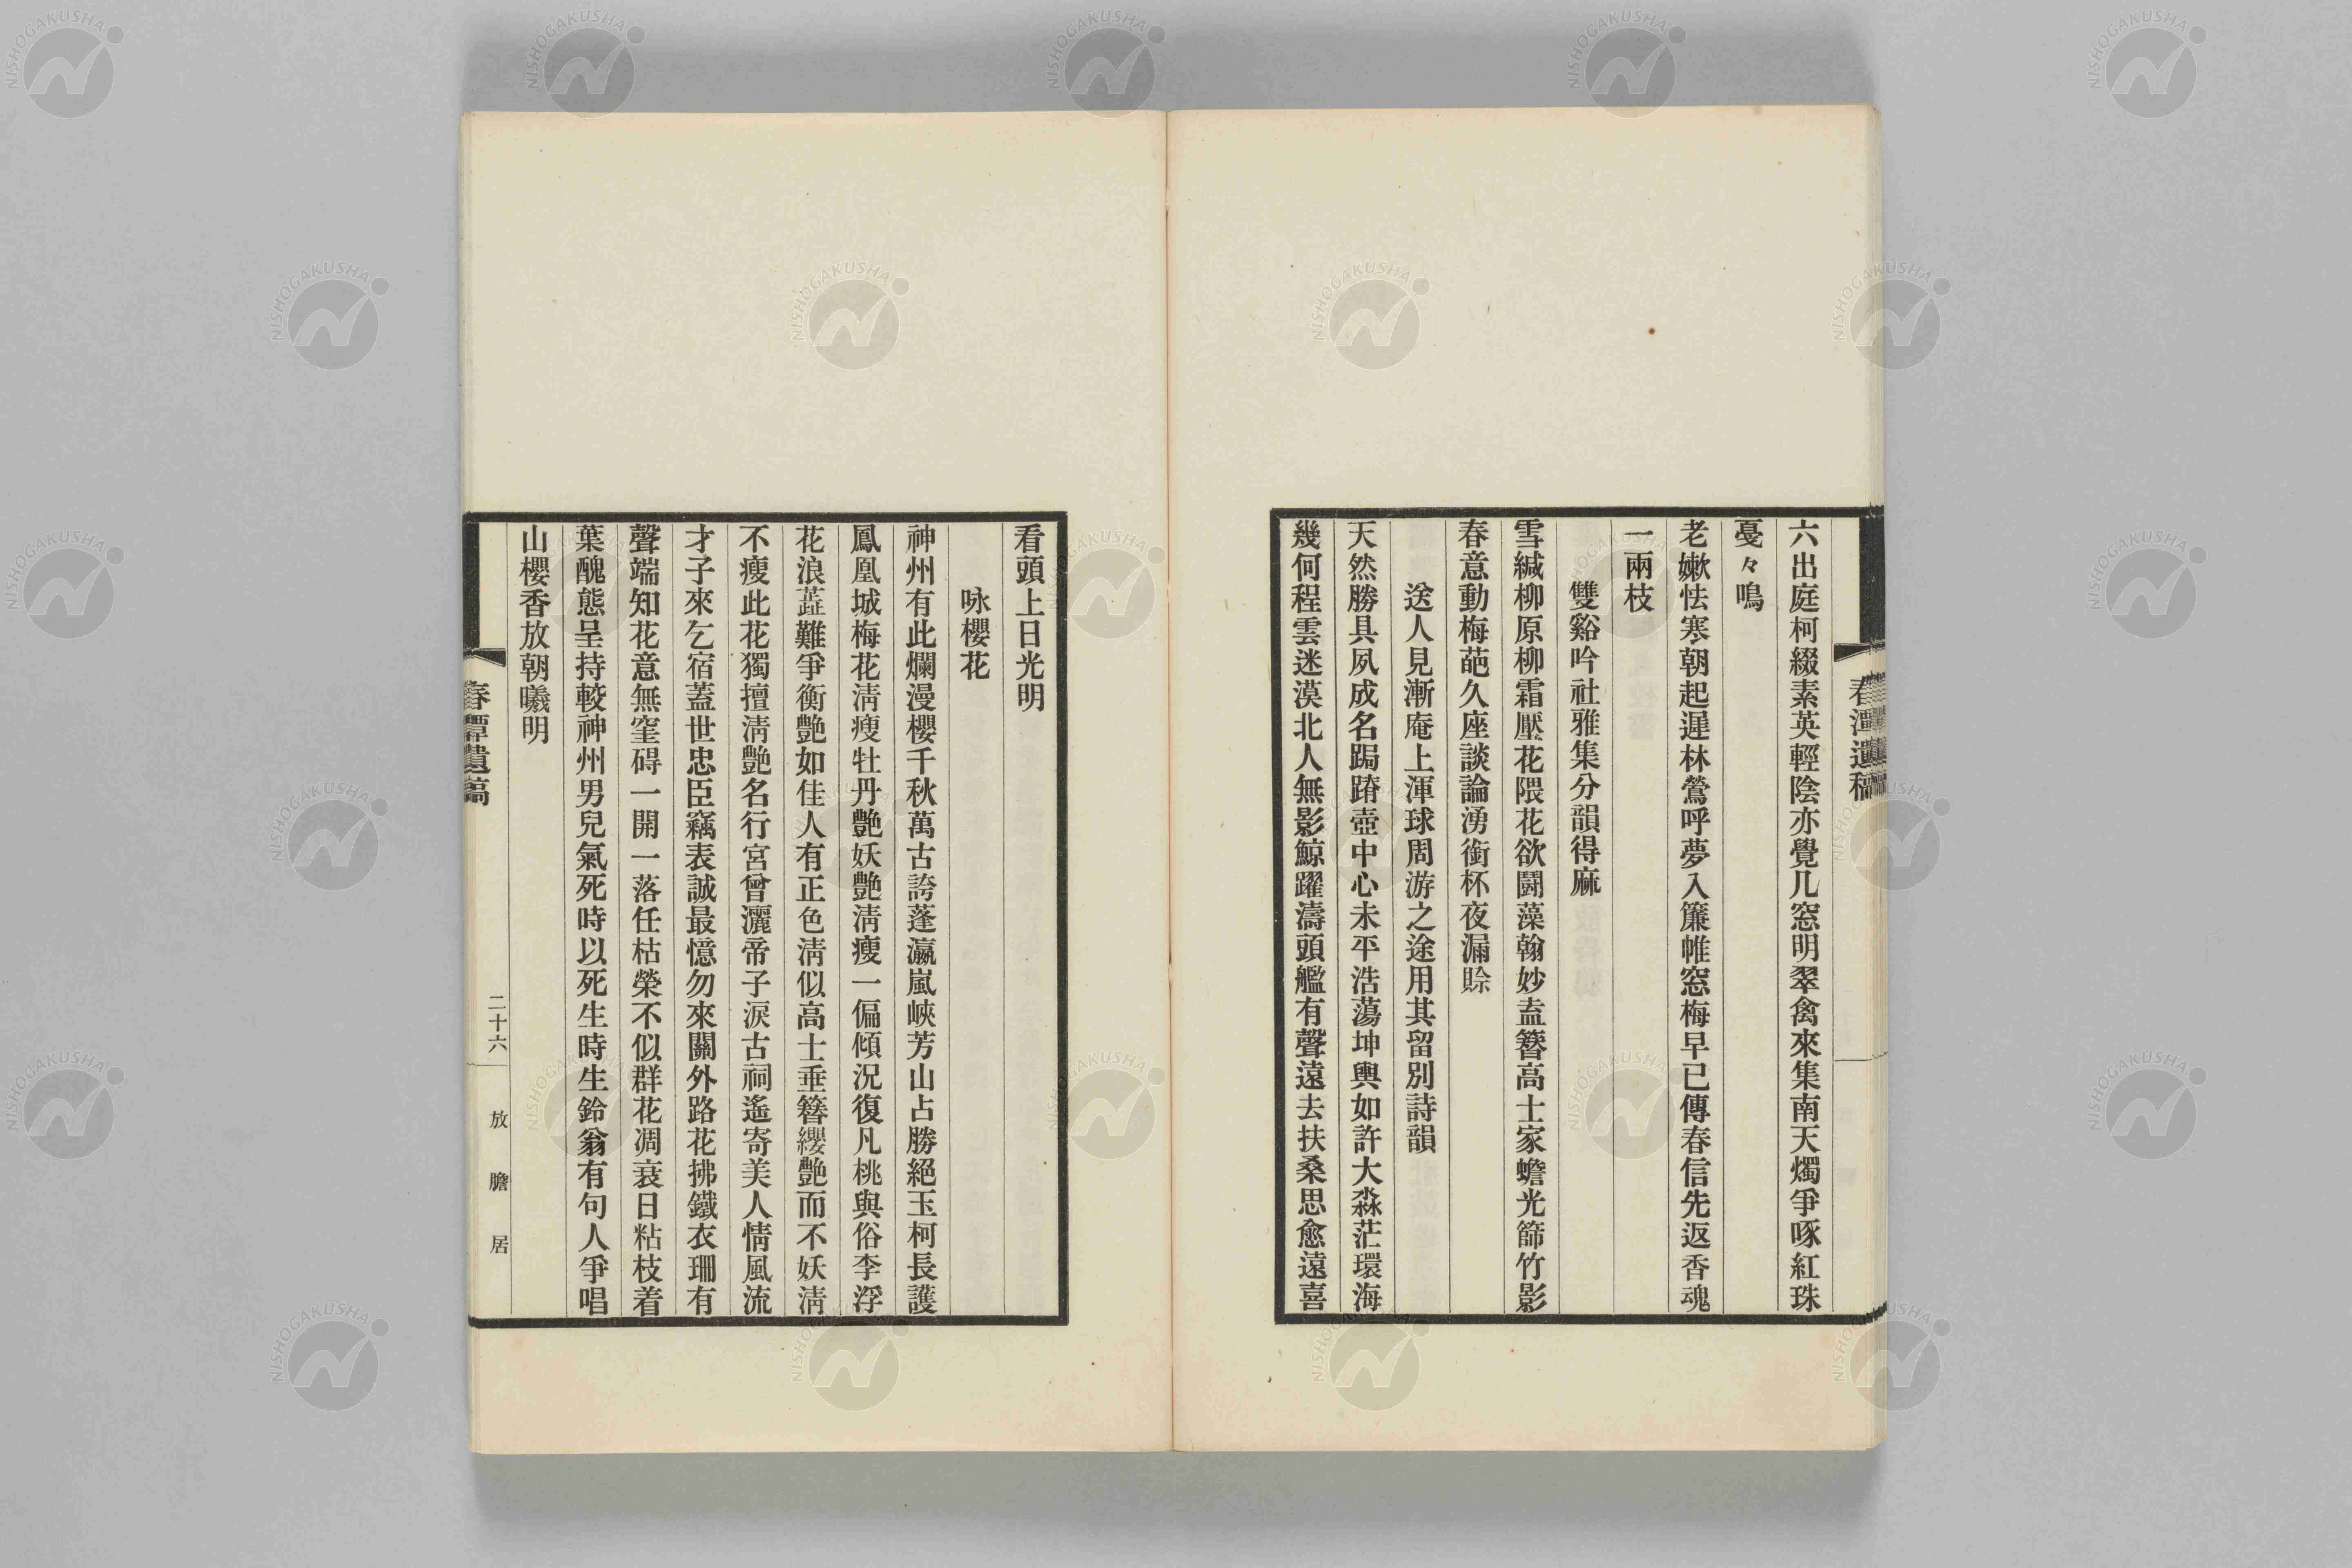 春潭遺稿
六出庭柯綴素英輕陰亦覺几窓明翠禽來集南天燭爭啄紅珠
戞々鳴
老嫰怯寒朝起遲林鶯呼夢入簾帷窓梅早已傳春信先返香魂
一兩枝
雙谿吟社雅集分韻得麻
雪緘柳原柳霜壓花隈花欲鬪藻翰妙盍簪高士家蟾光篩竹影
春意動梅葩久座談論湧銜杯夜漏賖
送人見漸庵上渾球周游之途用其留別詩韻
天然勝具夙成名跼蹐壺中心未平浩蕩坤輿如許大淼茫環海
幾何程雲迷漠北人無影鯨躍濤頭艦有聲遠去扶桑思愈遠喜
看頭上日光明
咏櫻花
神州有此爛漫櫻千秋萬古誇蓬瀛嵐峽芳山占勝絕玉柯長護
鳳凰城梅花淸瘦牡丹艷妖艷淸瘦一偏傾況復凡桃與俗李浮
花浪蘂難爭衡艷如佳人有正色淸似高士垂簪纓艷而不妖淸
不瘦此花獨擅淸艷名行宮曾灑帝子淚古祠遙寄美人情風流
才子來乞宿蓋世忠臣竊表誠最憶勿來關外路花拂鐵衣珊有
聲端知花意無窒碍一開一落任枯榮不似群花凋衰日粘枝着
葉醜態呈持較神州男兒氣死時以死生時生鈴翁有句人爭唱
山櫻香放朝曦明
春潭遺稿
二十六
放膽居
NISHOGAKUSHA